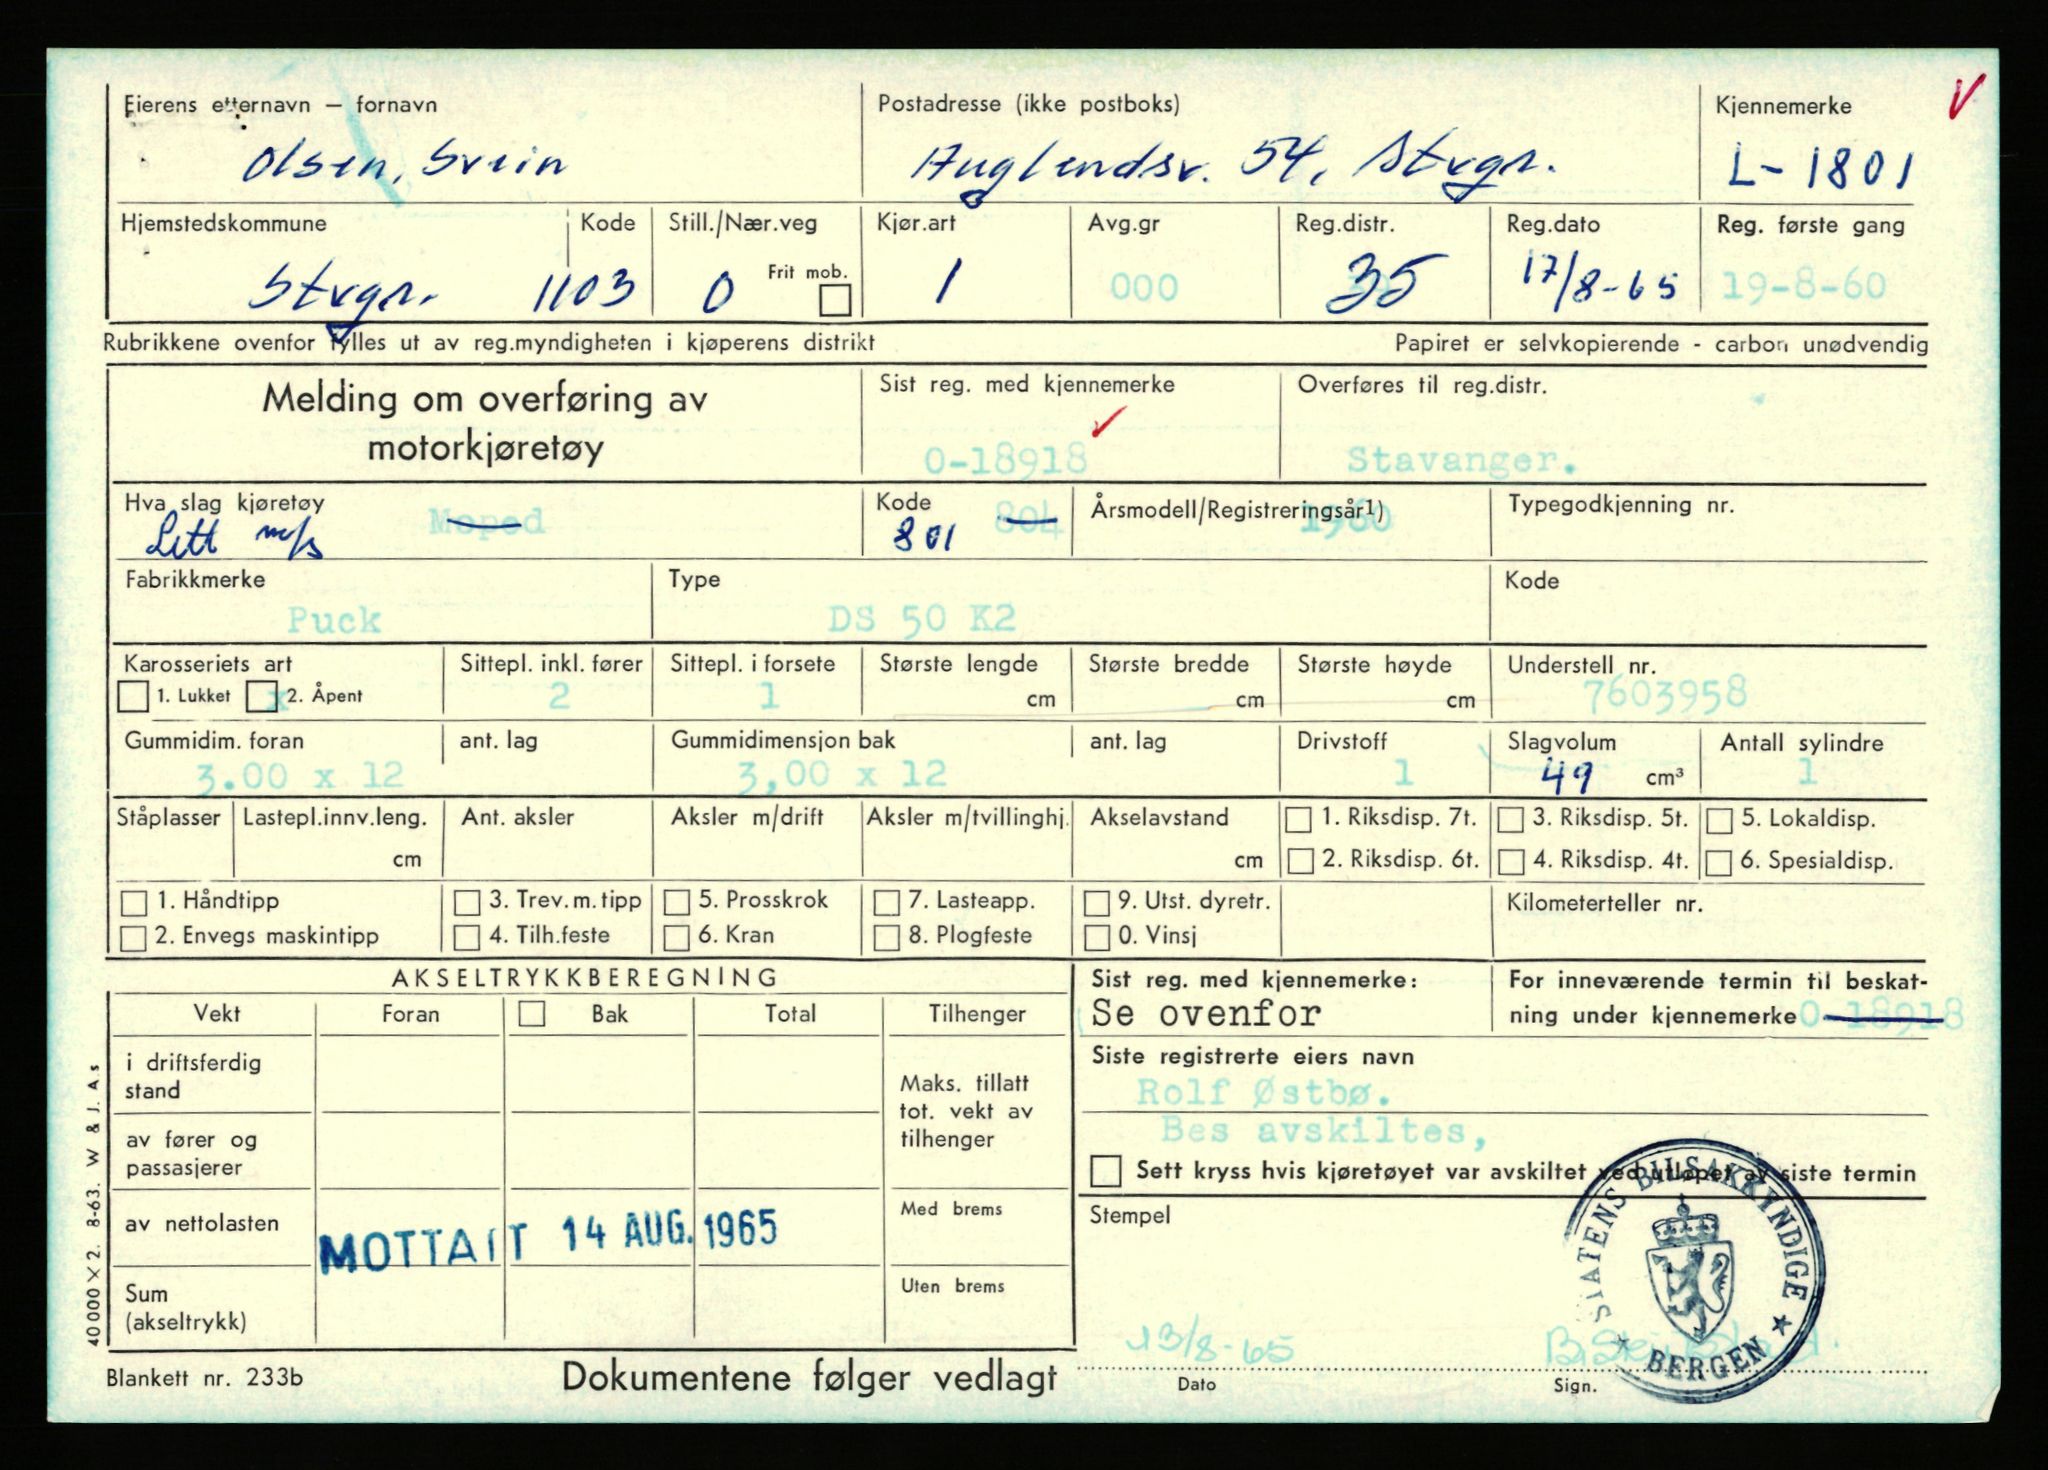 Eierens etternavn – fornavn
Olsen, Svein
Postadresse (ikke postboks)
Auglendsv. 54, Stvgr.
Kjennemerke
L-1801
Hjemstedskommune
Stvgr.
Kode
1103
Still./Nær.veg
0
Frit mob.
Kjør.art
1
Avg.gr
000
Reg.distr.
35
Reg.dato
17/8-65
Reg. første gang
19-8-60
Rubrikkene ovenfor fylles ut av reg.myndigheten i kjøperens distrikt
Papiret er selvkopierende - carbon unødvendig
Melding om overføring av
motorkjøretøy
Sist reg. med kjennemerke
O-18918
Overføres til reg.distr.
Stavanger.
Hva slag kjøretøy
Lett m/s
Moped
Kode
801
804
Årsmodell/Registreringsår1)
1960
Typegodkjenning nr.
Fabrikkmerke
Puck
Type
DS 50 K2
Kode
Karosseriets art
1. Lukket
x
2. Åpent
Sittepl. inkl. fører
2
Sittepl. i forsete
1
Største lengde
cm
Største bredde
cm
Største høyde
cm
Understell nr.
7603958
Gummidim. foran
3.00 x 12
ant. lag
Gummidimensjon bak
3,00 x 12
ant. lag
Drivstoff
1
Slagvolum
49 cm³
Antall sylindre
1
Ståplasser
Lastepl.innv.leng.
cm
Ant. aksler
Aksler m/drift
Aksler m/tvillinghj.
Akselavstand
cm
1. Riksdisp. 7t.
2. Riksdisp. 6t.
3. Riksdisp. 5t.
4. Riksdisp. 4t.
5. Lokaldisp.
6. Spesialdisp.
1. Håndtipp
2. Envegs maskintipp
3. Trev. m. tipp
4. Tilh.feste
5. Prosskrok
6. Kran
7. Lasteapp.
8. Plogfeste
9. Utst. dyretr.
0. Vinsj
Kilometerteller nr.
AKSELTRYKKBEREGNING
Vekt
Foran
Bak
Total
Tilhenger
i driftsferdig
stand
av fører og
passasjerer
av nettolasten
Sum
(akseltrykk)
Maks. tillatt
tot. vekt av
tilhenger
Med brems
Uten brems
MOTTATT 14 AUG. 1965
Sist reg. med kjennemerke:
Se ovenfor
For inneværende termin til beskat-
ning under kjennemerke O-18918
Siste registrerte eiers navn
Rolf Østbø.
Bes avskiltes,
Sett kryss hvis kjøretøyet var avskiltet ved utløpet av siste termin
Stempel
STATENS BILSAKKYNDIGE
★ BERGEN ★
13/8-65
Dato
Sign.
40000 x 2. 8-63. W & J. A.s
Blankett nr. 233b
Dokumentene følger vedlagt